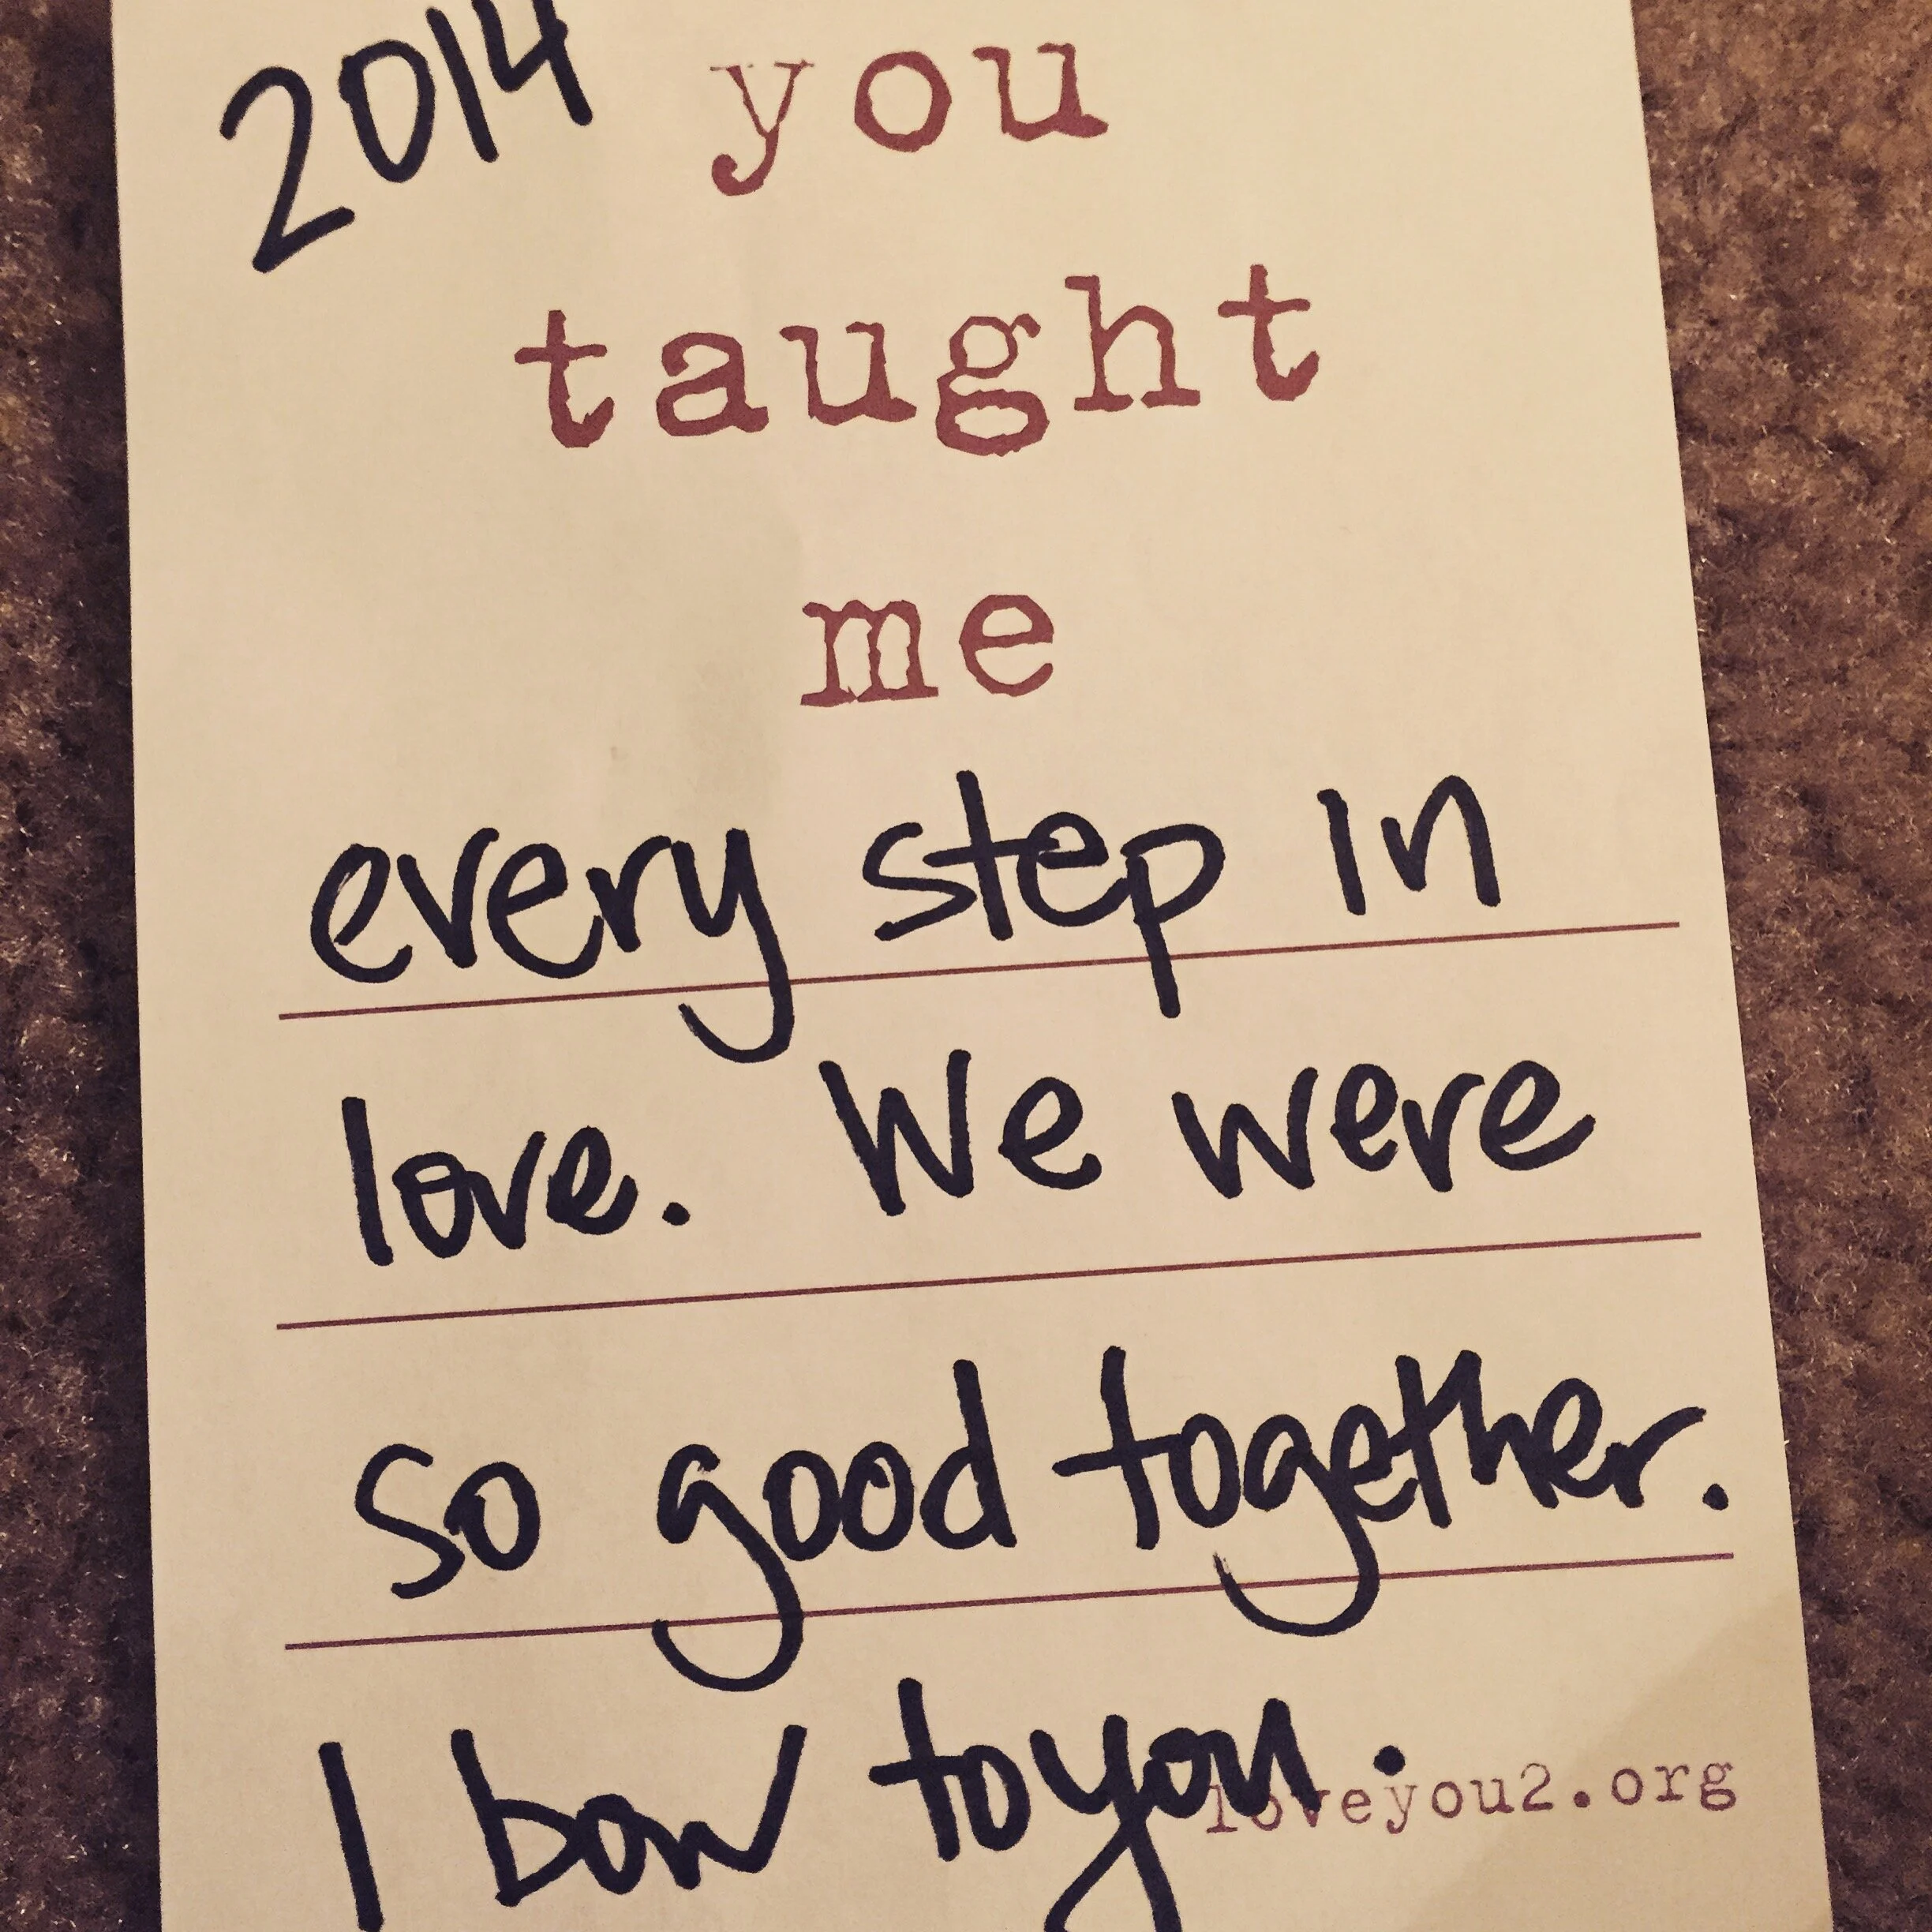 2014 you
taught
me
every step in
love. We were
so good together.
I bow to you.
loveyou2.org